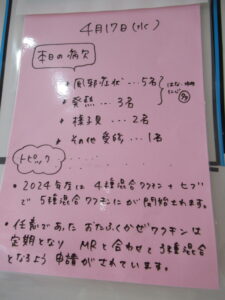 4月17日(水)
本日の病欠
・風邪症状…5名
・発熱…3名
・様子見…2名
・その他受診…1名
はな、咳
トピック
・2024年度は4種混合ワクチン+ヒブ
で5種混合ワクチンが開始されます。
・任意であったおたふくかぜワクチンは
定期となり MRと合わせて3種混合
となるよう申請がされています。